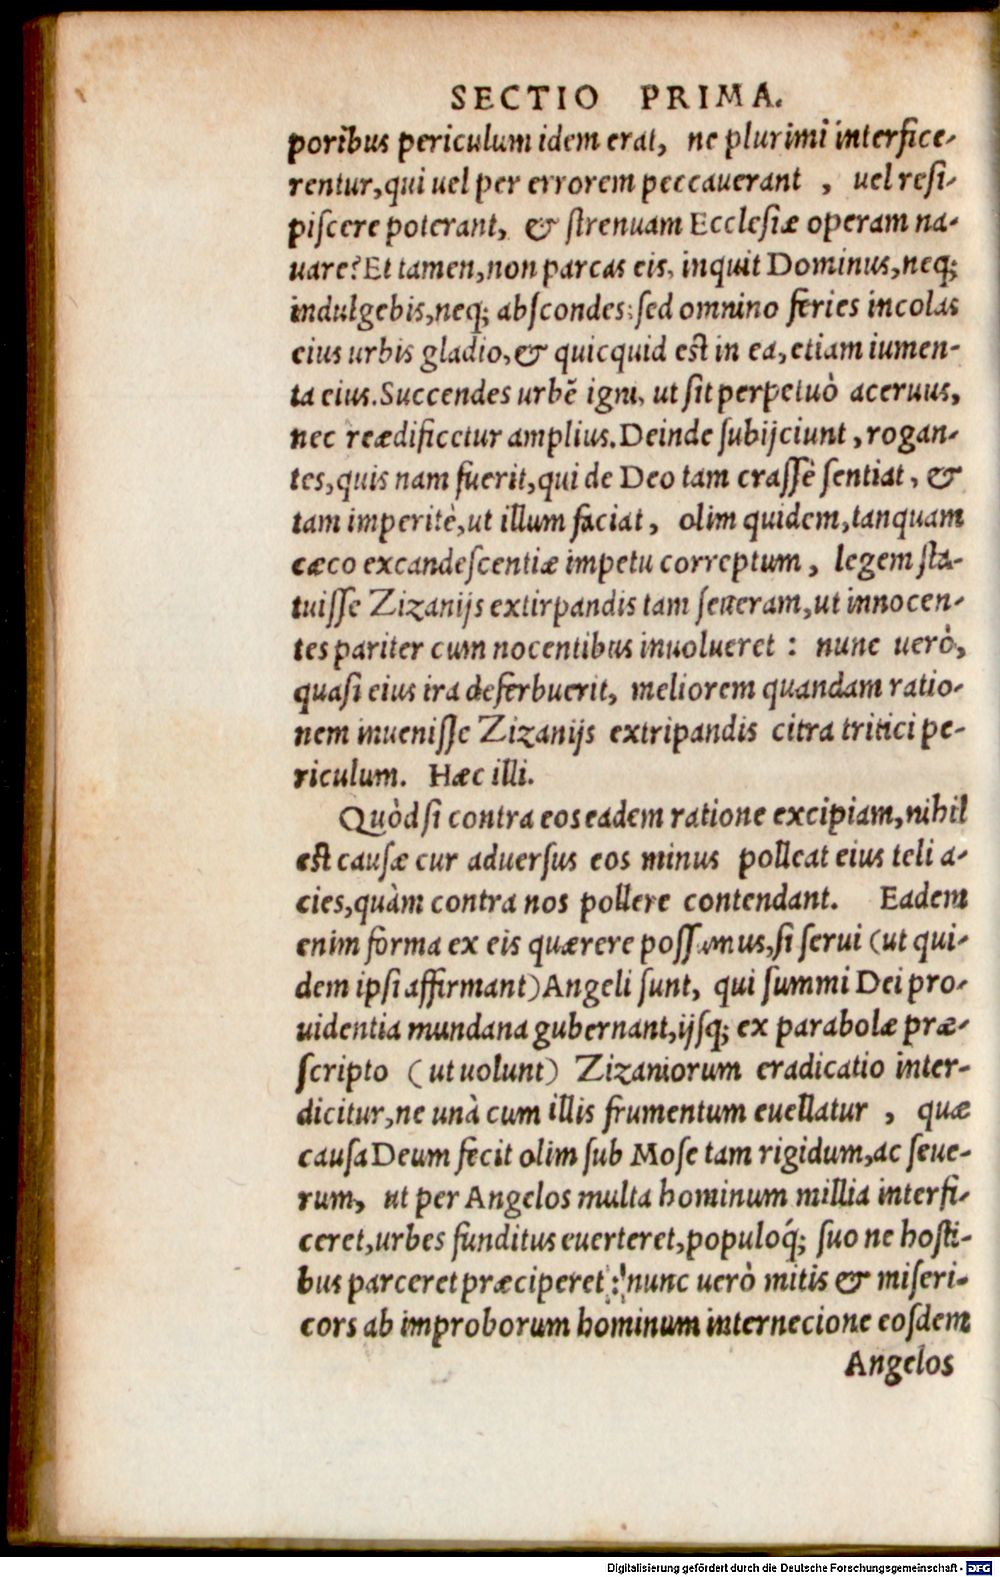 SECTIO PRIMA.
poribus periculum idem erat, ne plurimi interfice-
rentur, qui uel per errorem peccauerant , uel resi-
piscere poterant, & strenuam Ecclesiæ operam na-
uare? Et tamen, non parcas eis, inquit Dominus, neq;
indulgebis, neq; abscondes: sed omnino feries incolas
eius urbis gladio, & quicquid est in ea, etiam iumen-
ta eius. Succendes urbē igni, ut sit perpetuò aceruus,
nec reædificetur amplius. Deinde subijciunt, rogan-
tes, quis nam fuerit, qui de Deo tam crassè sentiat, &
tam imperitè, ut illum faciat, olim quidem, tanquam
cæco excandescentiæ impetu correptum, legem sta-
tuisse Zizanijs extirpandis tam seueram, ut innocen-
tes pariter cum nocentibus inuolueret : nunc uerò,
quasi eius ira deferbuerit, meliorem quandam ratio-
nem inuenisse Zizanijs extripandis citra tritici pe-
riculum. Hæc illi.
Quòd si contra eos eadem ratione excipiam, nihil
est causæ cur aduersus eos minus polleat eius teli a-
cies, quàm contra nos pollere contendant. Eadem
enim forma ex eis quærere possumus, si serui (ut qui-
dem ipsi affirmant) Angeli sunt, qui summi Dei pro-
uidentia mundana gubernant, ijsq; ex parabolæ præ-
scripto (ut uolunt) Zizaniorum eradicatio inter-
dicitur, ne unà cum illis frumentum euellatur , quæ
causa Deum fecit olim sub Mose tam rigidum, ac seue-
rum, ut per Angelos multa hominum millia interfi-
ceret, urbes funditus euerteret, populoq́; suo ne hosti-
bus parceret præciperet : nunc uerò mitis & miseri-
cors ab improborum hominum internecione eosdem
Angelos
Digitalisierung gefördert durch die Deutsche Forschungsgemeinschaft - DFG